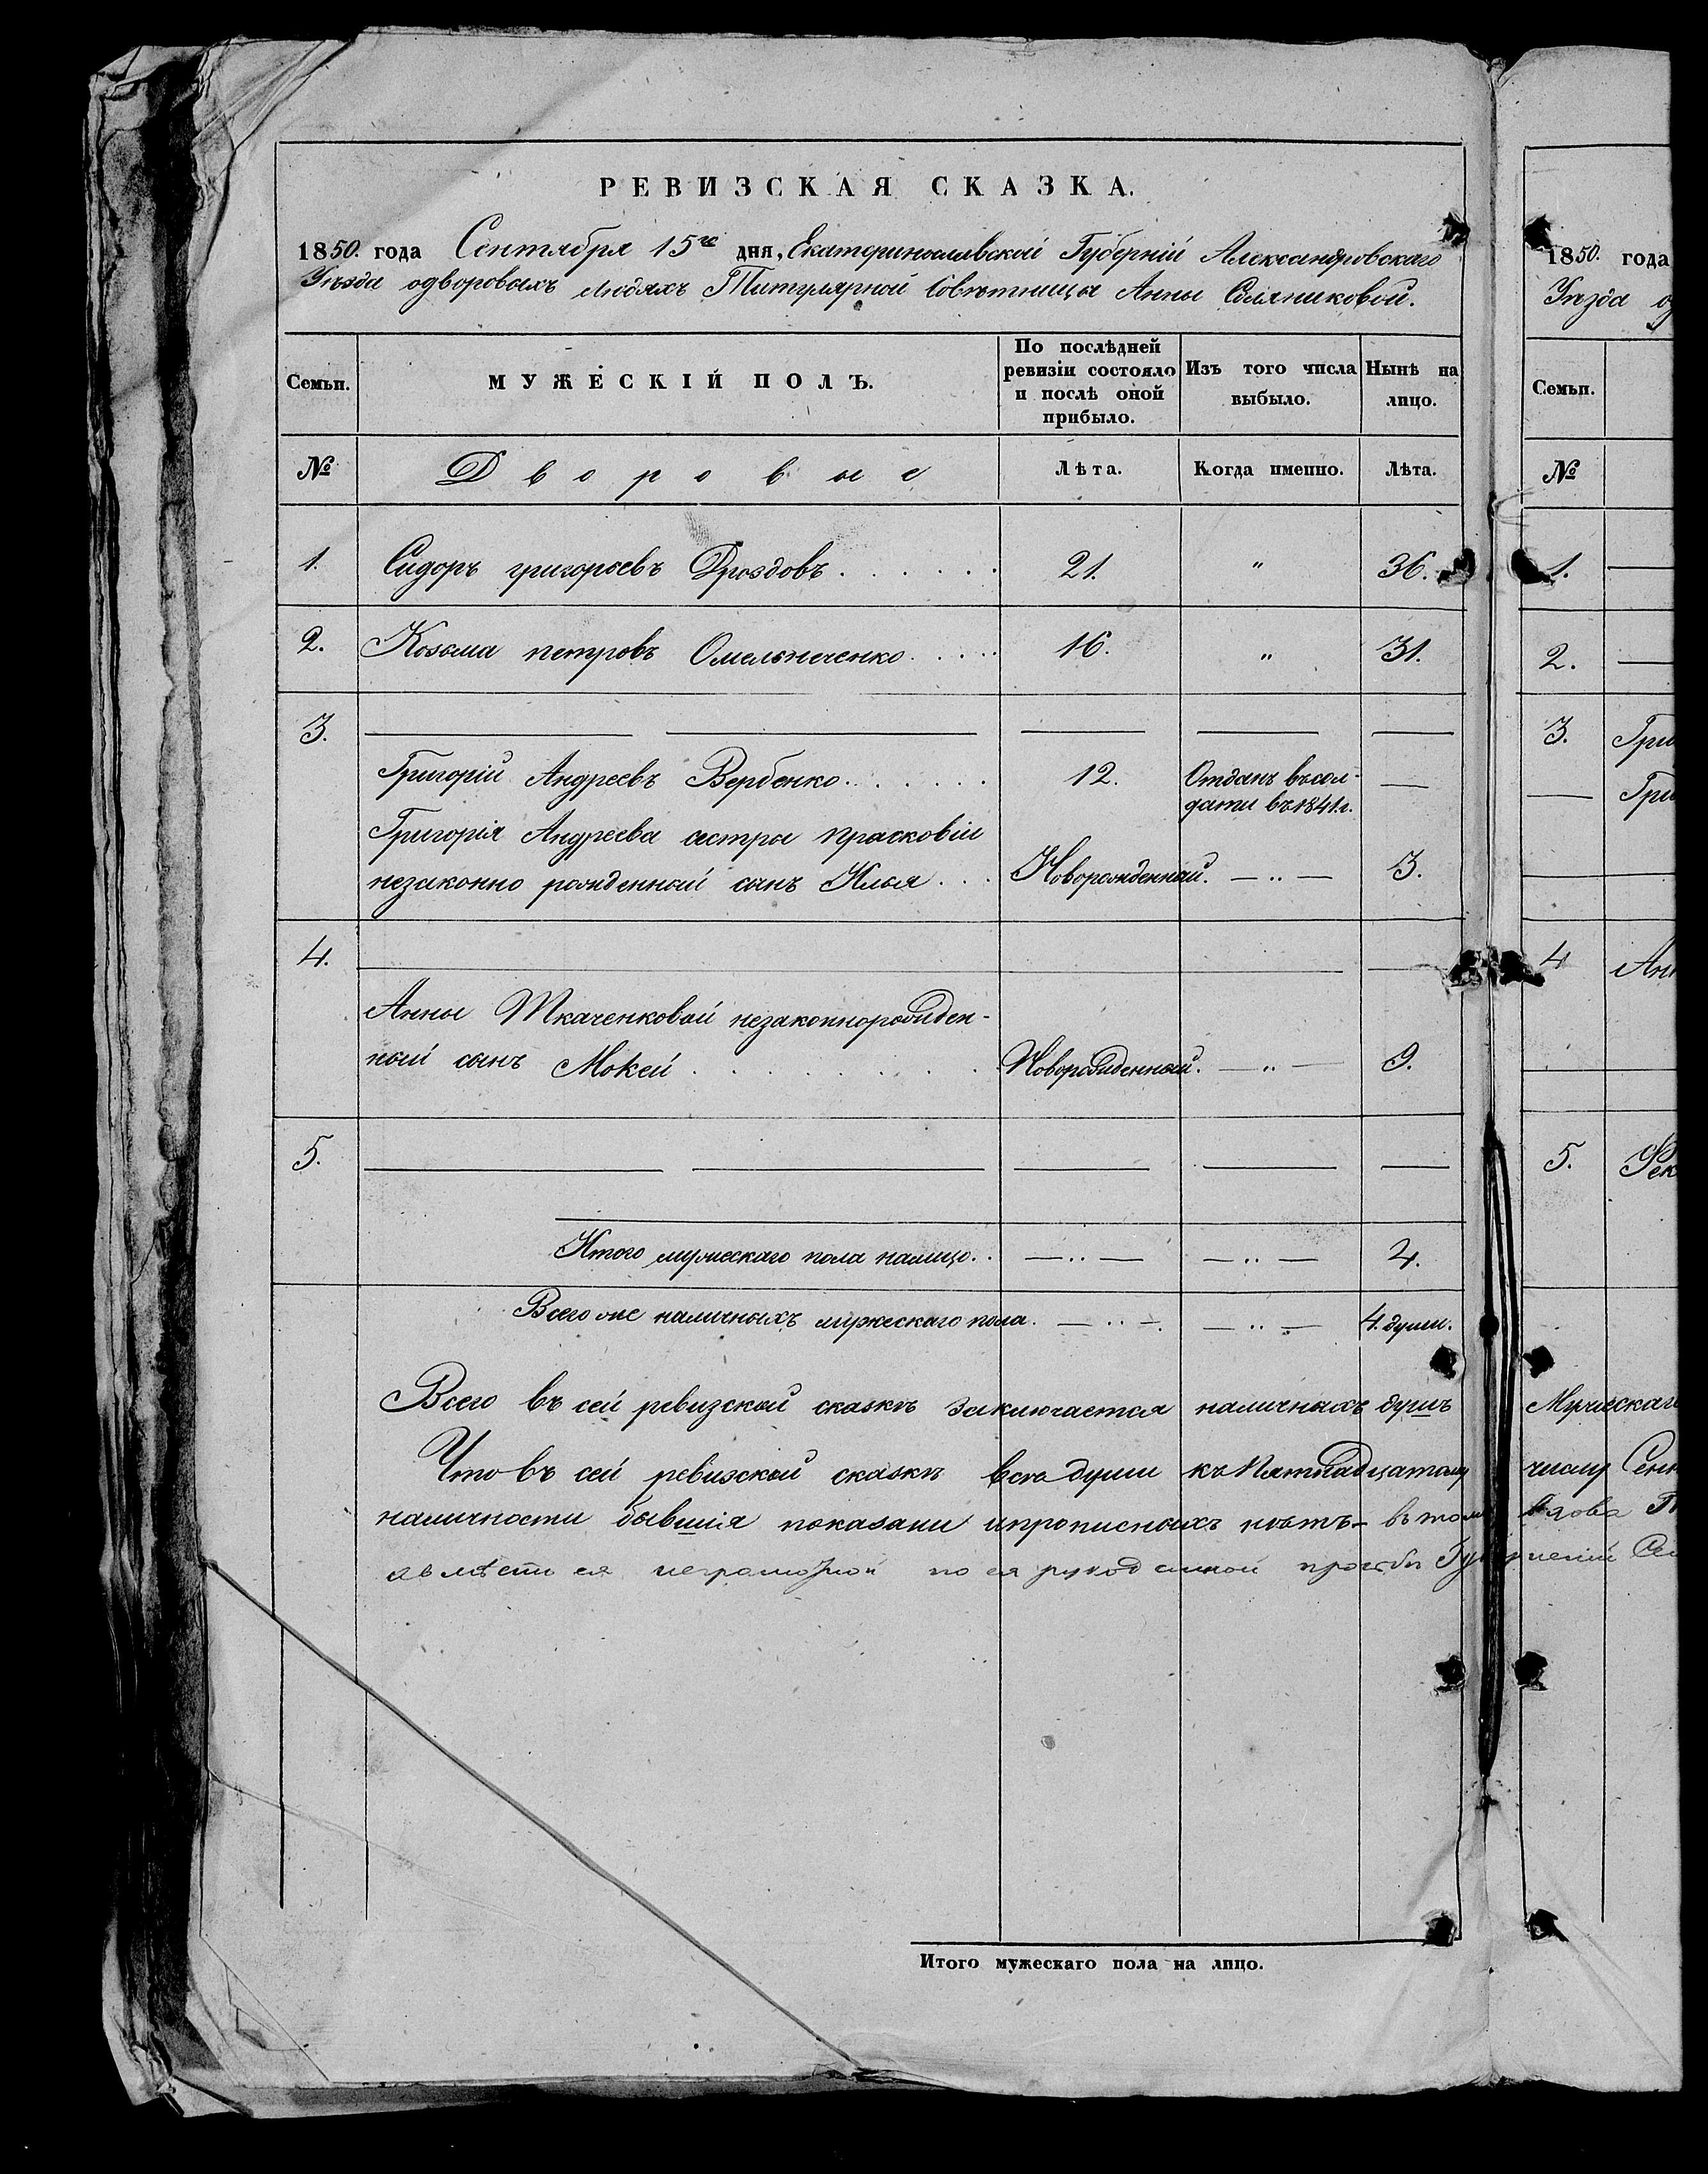 РЕВИЗСКАЯ СКАЗКА.
1850. года Сентября 15го дня, Екатеринославской Губерніи Александровскаго
Уѣзда одворовыхъ людяхъ Титулярной Совѣтницы Анны Соляниковой.
Семьи.
МУЖЕСКІЙ ПОЛЪ.
По послѣдней
ревизіи состояло
и послѣ оной
прибыло.
Изъ того числа
выбыло.
Нынѣ на
лицо.
№ Дворовые Лѣта. Когда именно. Лѣта.
1. Сидоръ григорьевъ Дроздовъ . . . . . . 21. " 36.
2. Козьма петровъ Омельнеченко . . . . 16. " 31.
3.
Григорій Андреевъ Вербенко . . . . . . 12. Отданъ въсол-
дати въ 1841 г.
Григорія Андреева сестры прасковіи
незаконно рожденный сынъ Илья . . . Новорожденный. — „ — 3.
4.
Анны Ткаченковой незаконнорожден-
ный сынъ Мокей . . . . . . . . Новорожденный. — „ — 9.
5.
Итого мужескаго пола налицо . . — „ — — „ — 4.
Всего же наличныхъ мужескаго пола. — „ — — „ — 4. души.
Всего въ сей ревизской сказкѣ заключается наличныхъ душъ
Что въ сей ревизской сказкѣ всѣ души къ Пятнадцатому
наличности бывшія показаны ипрописныхъ нѣтъ - въ томъ
неграмотной по ея рукоданной
Итого мужескаго пола на лицо.
1850. года
Уѣзда
Семьи.
№
1.
2.
3. Гри
Гри
4 Ан
5. Фек
Мужескаго
числу Сен